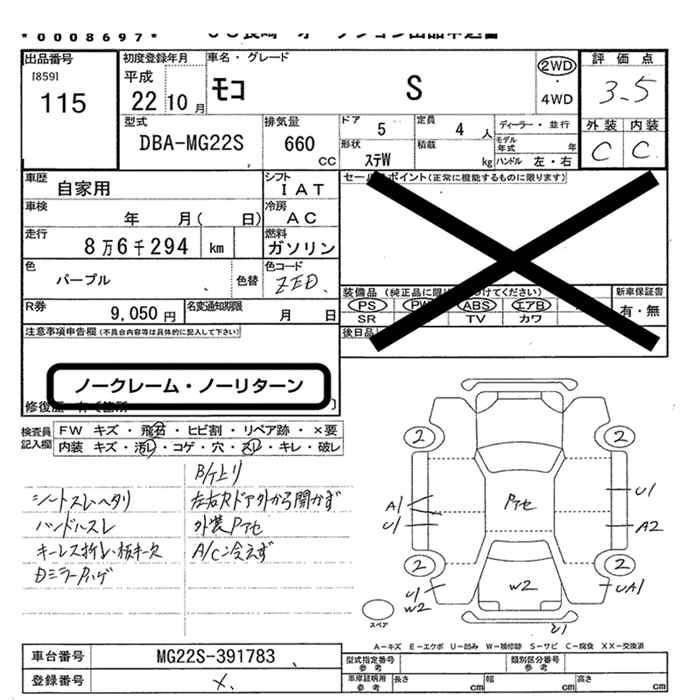 *0008697*
出品番号
[859]
115
初度登録年月
平成
22 10月
車名・グレード
モコ S
2WD
・
4WD
評価点
3.5
外装 内装
C C
型式
DBA-MG22S
排気量
660
cc
ドア
5
定員
4 人
ディーラー・並行
モデル年式 年
形状
ステW
積載
kg
ハンドル 左・右
車歴
自家用
シフト
IAT
車検
年 月( 日)
冷房
AC
走行
8万6千294 km
燃料
ガソリン
色
パープル
色替
色コード
ZED.
R券
9,050円
名変通知期限
月 日
注意事項申告欄(不具合内容等は具体的に記入して下さい)
ノークレーム・ノーリターン
ポイント(正常に機能するものに限ります)
装備品(純正品に限 けてください)
PS PW ABS エアB
SR TV カワ
新車保証書
有・無
後日品
検査員記入欄
FW キズ・飛石・ヒビ割・リペア跡・×要
内装 キズ・汚レ・コゲ・穴・スレ・キレ・破レ
B/T上リ
シートスレヘタリ
左右Rドア外から開かず
ハンドルスレ
外装Pアセ
A/C冷えず
2 2
A1
U1
Pアセ
U1
A2
2 2
U1
W2
W2
UA1
U1
スペア
A-キズ E-エクボ U-凹み W-補修跡 S-サビ C-腐食 XX-交換済
車台番号
MG22S-391783
登録番号
×
型式指定番号
参考
類別区分番号
参考
車庫証明用
参考
長さ cm
幅 cm
高さ cm